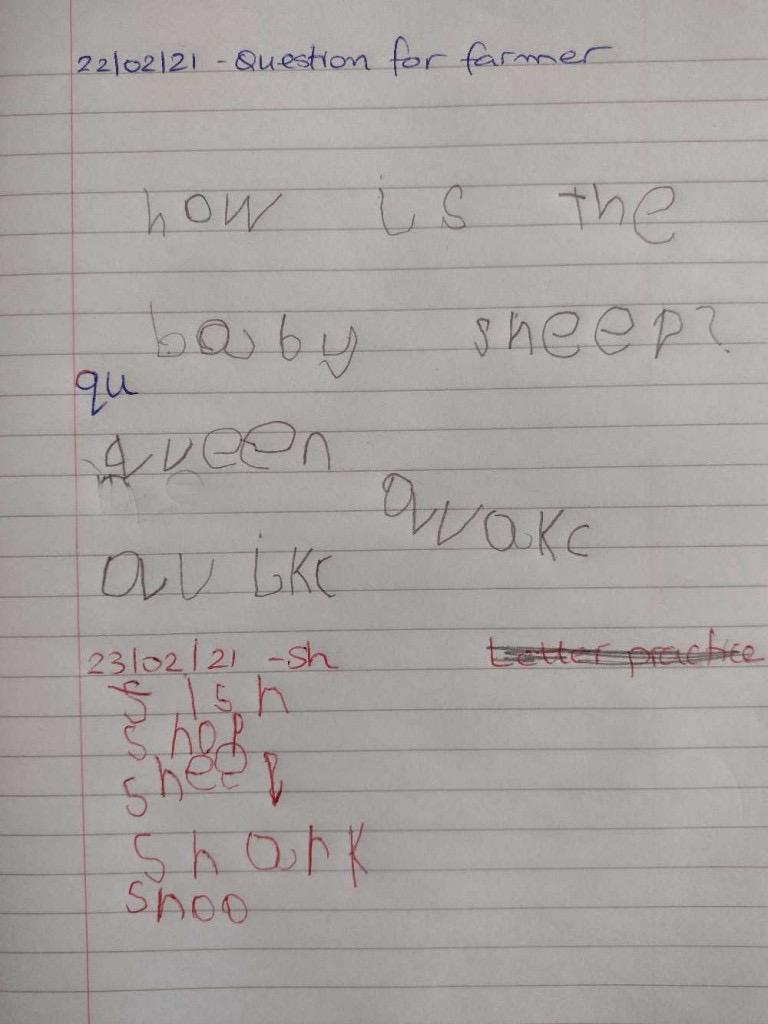 22/02/21 - Question for farmer
how is the
baby sheep?
qu
queen
quakc
quikc
23/02/21 - sh Letter practice
fish
shop
sheep
shark
shoo